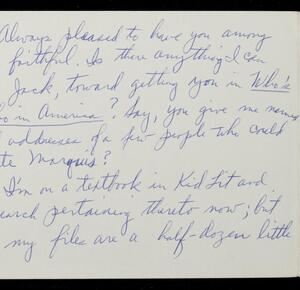 Always pleased to have you among
faithful. Is there anything I can
Jack, toward getting you in Who's
o in America? Say, you give me names
addresses of a few people who could
te Marquis?
I'm on a textbook in Kid Lit and
earch pertaining thereto now; but
my files are a half-dozen little